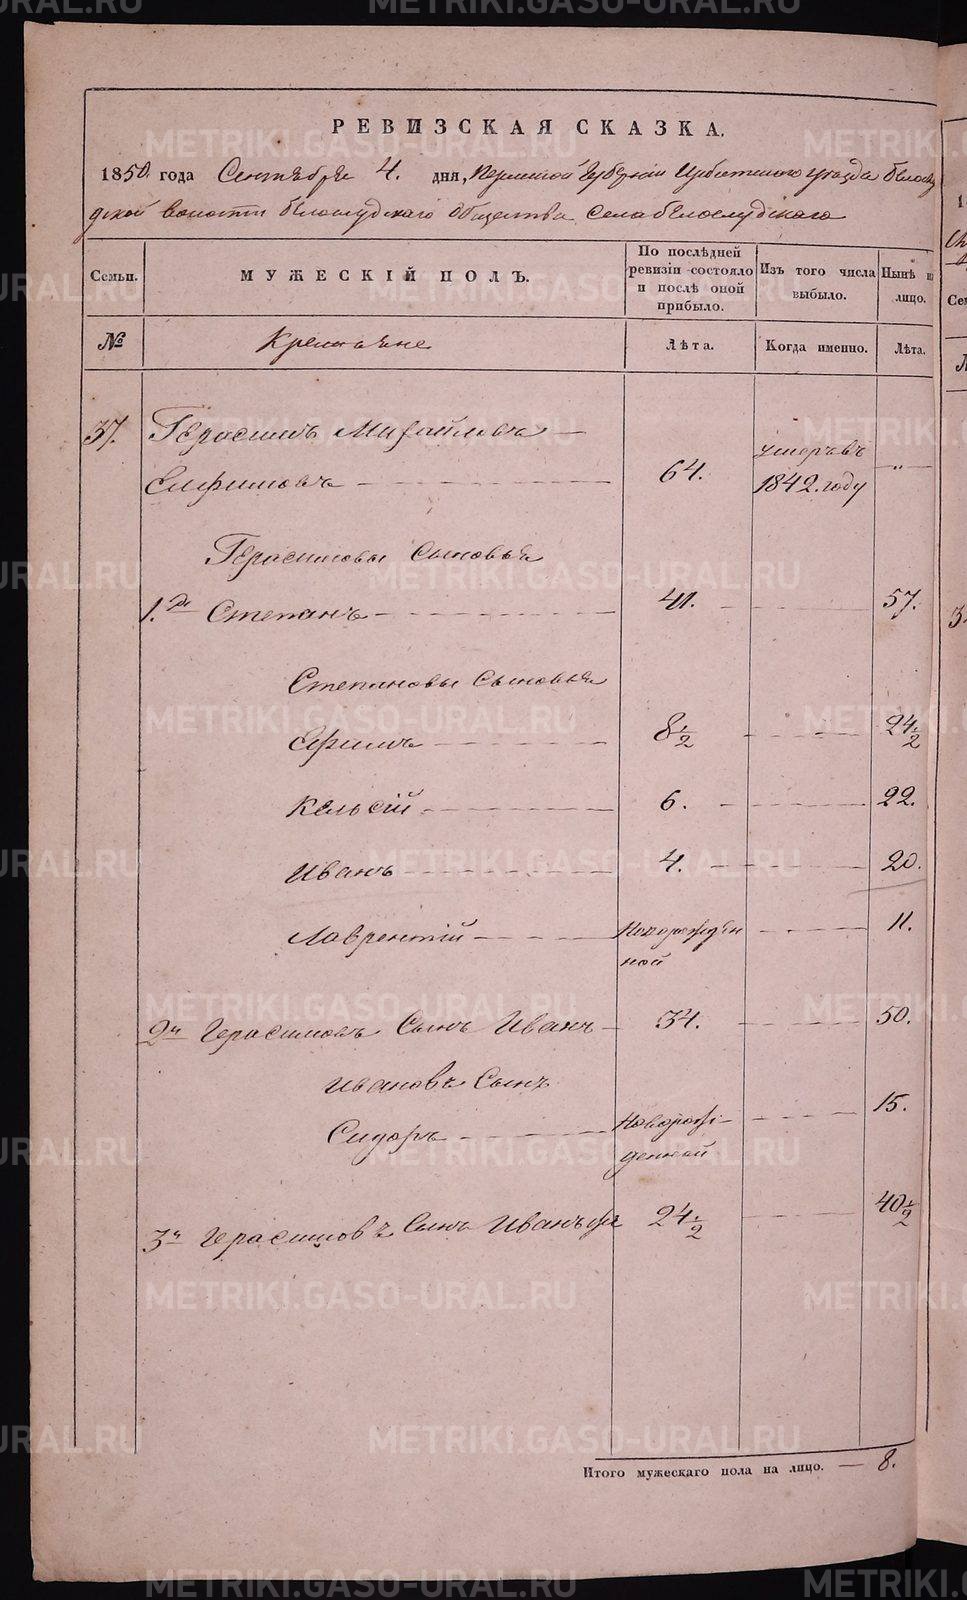 РЕВИЗСКАЯ СКАЗКА.
1850. года Сентября 4. дня, Пермской Губернии Ирбитского уезда Белослу
дской волости Белослудского Общества Села Белослудского
Семьи.
МУЖЕСКІЙ ПОЛЪ.
По послѣдней ревизіи состояло и послѣ оной прибыло.
Изъ того числа выбыло.
Нынѣ на лицо.
№
Крестьяне
Лѣта.
Когда именно.
Лѣта.
37. Герасимъ Михайловъ —
Елфимовъ — 64. умеръ въ 1842. году — „ —
Герасимовы Сыновья
1.й Степанъ — 41. — 57.
Степановы Сыновья
Ефимъ — 8 1/2 — 24 1/2
Кельсій — 6. — 22.
Иванъ — 4. — 20.
Лаврентій — Новорожден
ной — 11.
2й Герасимовъ Сынъ Иванъ — 34. — 50.
Ивановъ Сынъ
Сидоръ — Новорож-
денной — 15.
3й Герасимовъ Сынъ Иванъ же 24 1/2 — 40 1/2
Итого мужескаго пола на лицо. — 8.
METRIKI.GASO-URAL.RU